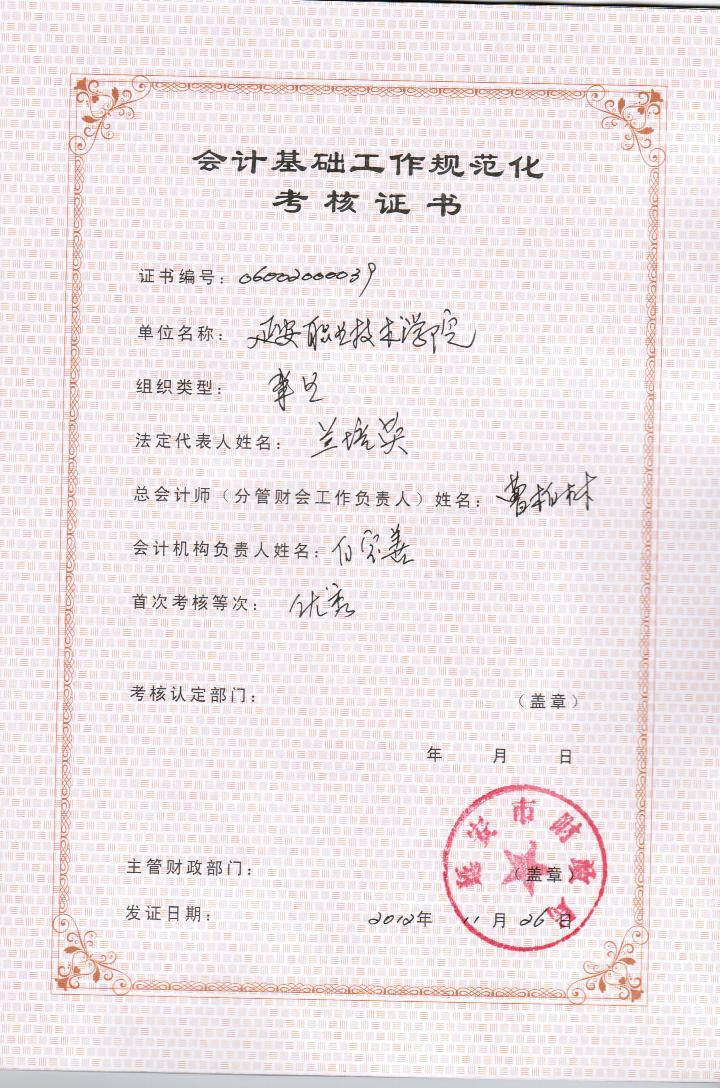 会计基础工作规范化
考核证书
证书编号：06002000039
单位名称：延安职业技术学院
组织类型：事业
法定代表人姓名：兰培英
总会计师（分管财会工作负责人）姓名：曹柏林
会计机构负责人姓名：白宗善
首次考核等次：优秀
考核认定部门：（盖章）
年 月 日
延安市财政局
主管财政部门：（盖章）
发证日期：2012年 11月 26日